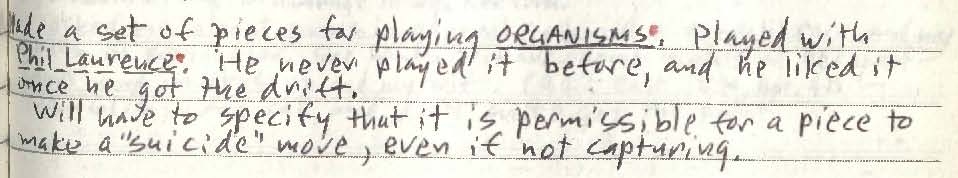 Made a set of pieces for playing ORGANISMS. Played with
Phil Laurence. He never played it before, and he liked it
once he got the drift.
Will have to specify that it is permissible for a piece to
make a "suicide" move, even if not capturing.